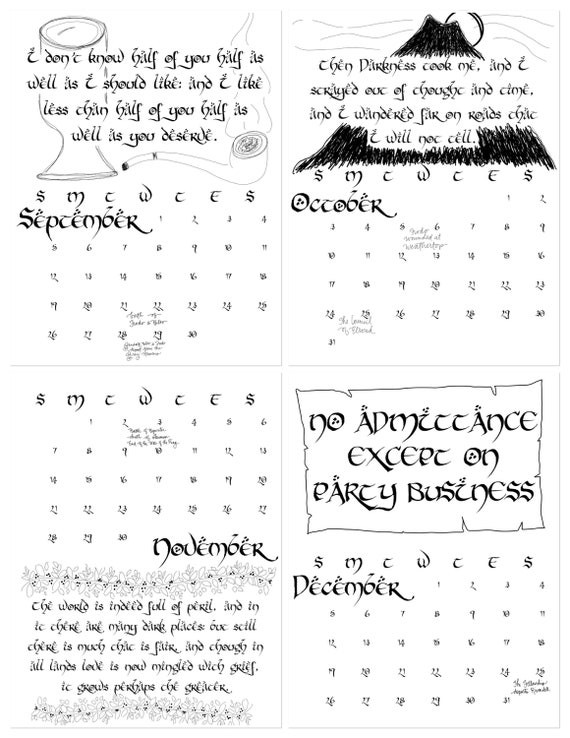 I don't know half of you half as
well as I should like; and I like
less than half of you half as
well as you deserve.
S M T W T F S
September 1 2 3 4
5 6 7 8 9 10 11
12 13 14 15 16 17 18
19 20 21 22 23 24 25
Birth of
Frodo & Bilbo
26 27 28 29 30
Then Darkness took me, and I
strayed out of thought and time,
and I wandered far on roads that
I will not tell.
S M T W T F S
October 1 2
3 4 5 6 7 8 9
Frodo
wounded at
Weathertop
10 11 12 13 14 15 16
17 18 19 20 21 22 23
24 25 26 27 28 29 30
The Council
of Elrond
31
S M T W T F S
1 2 3 4 5 6
Battle of Bywater
death of Saruman
End of the War of the Ring
7 8 9 10 11 12 13
14 15 16 17 18 19 20
21 22 23 24 25 26 27
28 29 30
November
The world is indeed full of peril, and in
it there are many dark places; but still
there is much that is fair, and though in
all lands love is now mingled with grief,
it grows perhaps the greater.
NO ADMITTANCE
EXCEPT ON
PARTY BUSINESS
S M T W T F S
December 1 2 3 4
5 6 7 8 9 10 11
12 13 14 15 16 17 18
19 20 21 22 23 24 25
The Fellowship
departs Rivendell
26 27 28 29 30 31